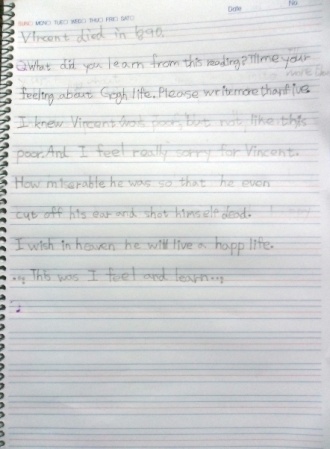 SUNO MONO TUEO WEDO THUO FRIO SATO Date No
Vincent died in 1890.
Q What did you learn from this reading? Time your
feeling about Gogh life. Please write more than
I knew Vincent was poor, but not like this
poor. And I feel really sorry for Vincent.
How miserable he was so that he even
cut off his ear and shot himself dead.
I wish in heaven he will live a happ life.
This was I feel and learn